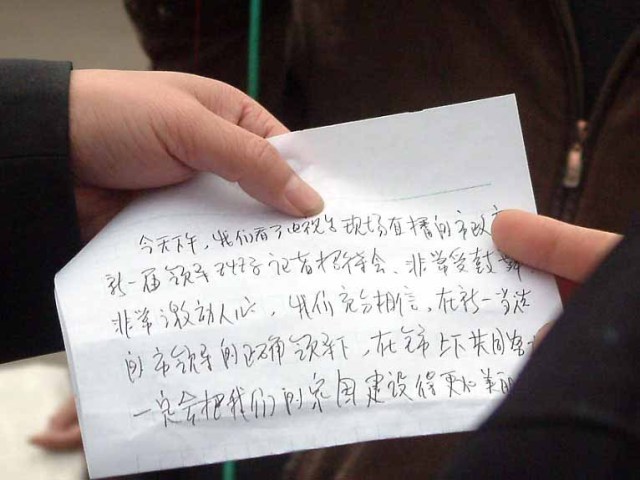 今天下午,我们看了电视台现场直播的市政府
新一届领导班子记者招待会、非常受鼓舞
非常激动人心,我们充分相信,在新一当选
的市领导的正确领导下,在全市上下共同努
一定会把我们的家园建设得更加美丽